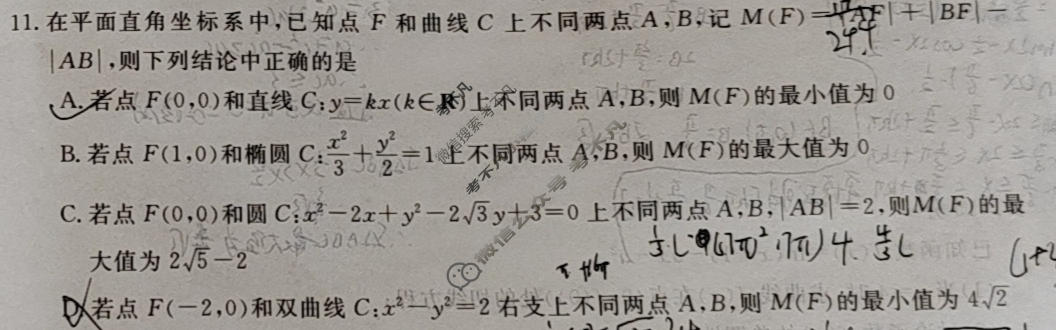 11. 在平面直角坐标系中,已知点 F 和曲线 C 上不同两点 A,B,记 M(F)=|AF|+|BF|-
|AB|,则下列结论中正确的是
A. 若点 F(0,0)和直线 C:y=kx(k∈R)上不同两点 A,B,则 M(F)的最小值为 0
B. 若点 F(1,0)和椭圆 C:x²/3+y²/2=1上不同两点 A,B,则 M(F)的最大值为 0
C. 若点 F(0,0)和圆 C:x²-2x+y²-2√3y+3=0 上不同两点 A,B,|AB|=2,则M(F)的最
大值为 2√5-2
D. 若点 F(-2,0)和双曲线 C:x²-y²=2 右支上不同两点 A,B,则 M(F)的最小值为 4√2
微信搜索
考不凡
微信公众号